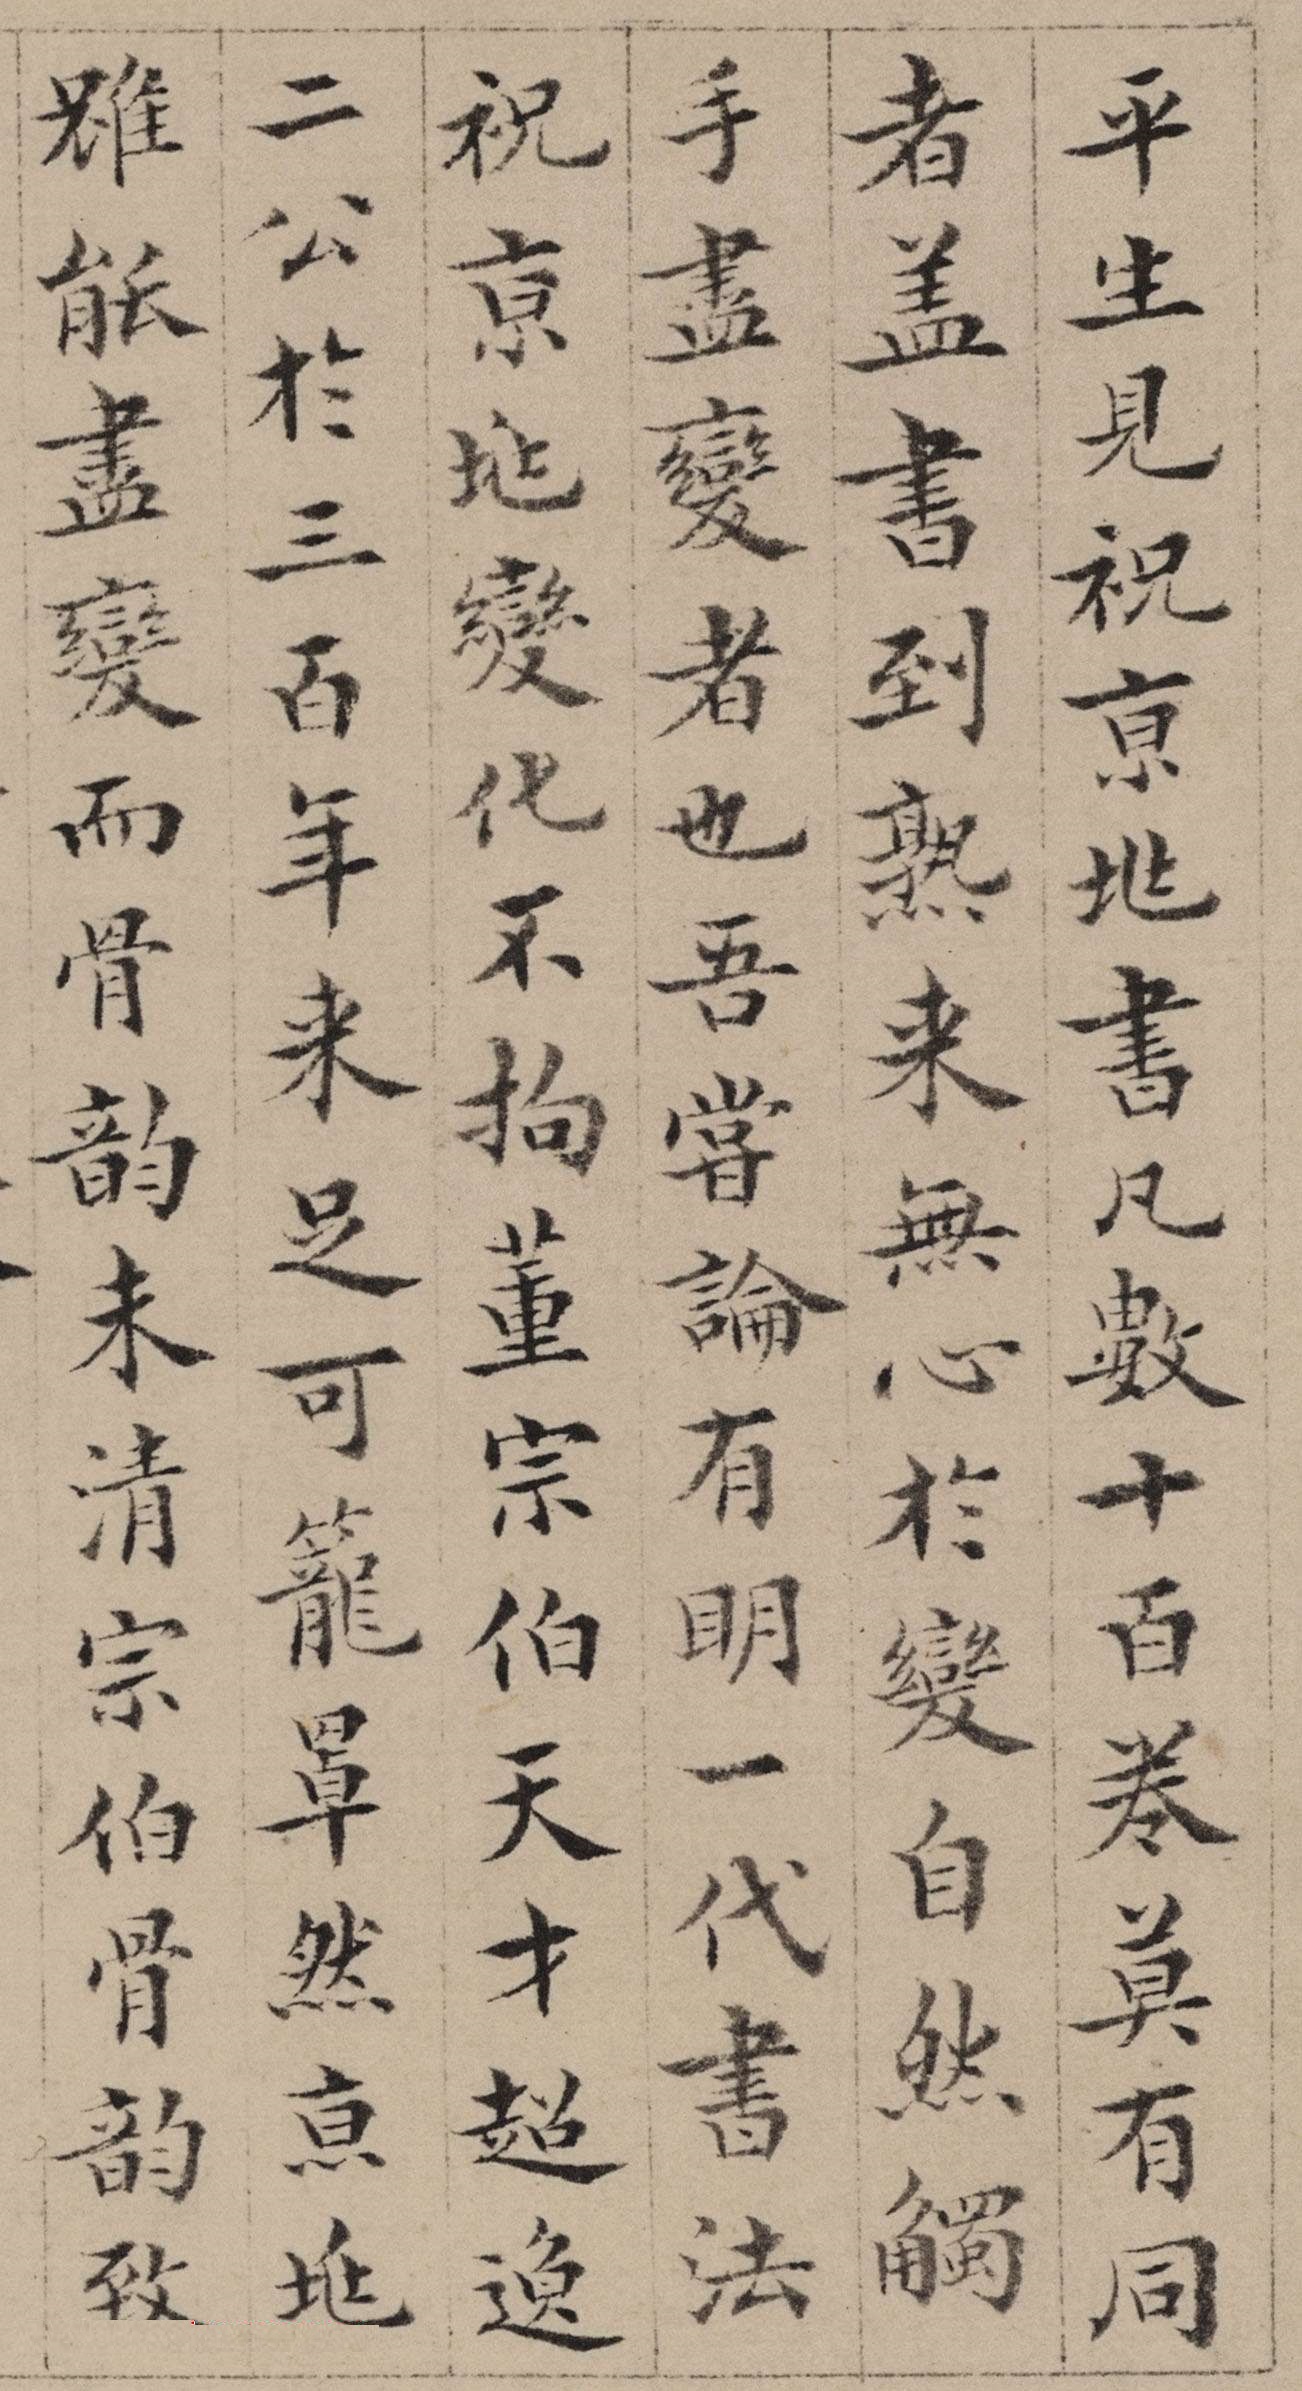 平生見祝京兆書凡數十百卷莫有同
者盖書到熟来無心於變自然觸
手盡變者也吾嘗論有明一代書法
祝京兆變化不拘董宗伯天才超逸
二公於三百年来足可籠罩然京兆
雖能盡變而骨韵未清宗伯骨韵致